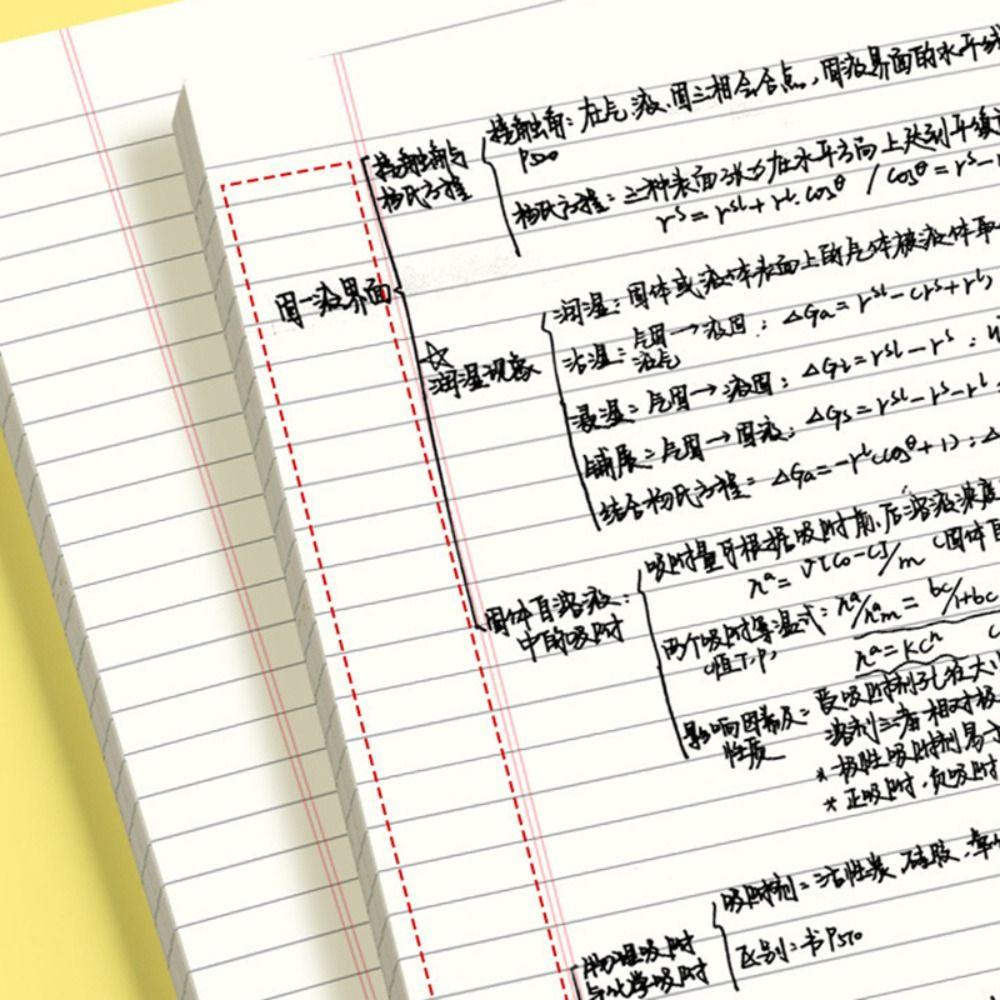 接触角与
杨氏方程
接触角：在气、液、固三相会合点，固液界面的水平线
P520
杨氏方程：三种表面张力在水平方向上达到平缓
rˢ = rˢᴸ + rᴸ·cosθ / cosθ = rˢ-
固-液界面
☆
润湿现象
润湿：固体或液体表面上的气体被液体取
沾湿：气固→液固：△Ga = rˢᴸ-(rˢ+rᴸ)
液气
浸湿：气固→液固：△Gi = rˢᴸ-rˢ：
铺展：气固→固液：△Gs = rˢᴸ-rˢ-rᴸ
结合杨氏方程：△Ga = -rᴸ(cosθ+1)；△
固体自溶液：
中的吸附
吸附量可根据吸附前、后溶液浓度
nᵃ = V(C₀-C)/m (固体自
两个吸附等温式：nᵃ/nᵃm = bc/1+bc
(恒T.P)
nᵃ = kcⁿ
影响因素及：受吸附剂孔径大小
性质
溶剂三者相对极
*极性吸附剂易
*正吸附，负吸附
物理吸附
与化学吸附
吸附剂：活性炭、硅胶、
区别：书P510